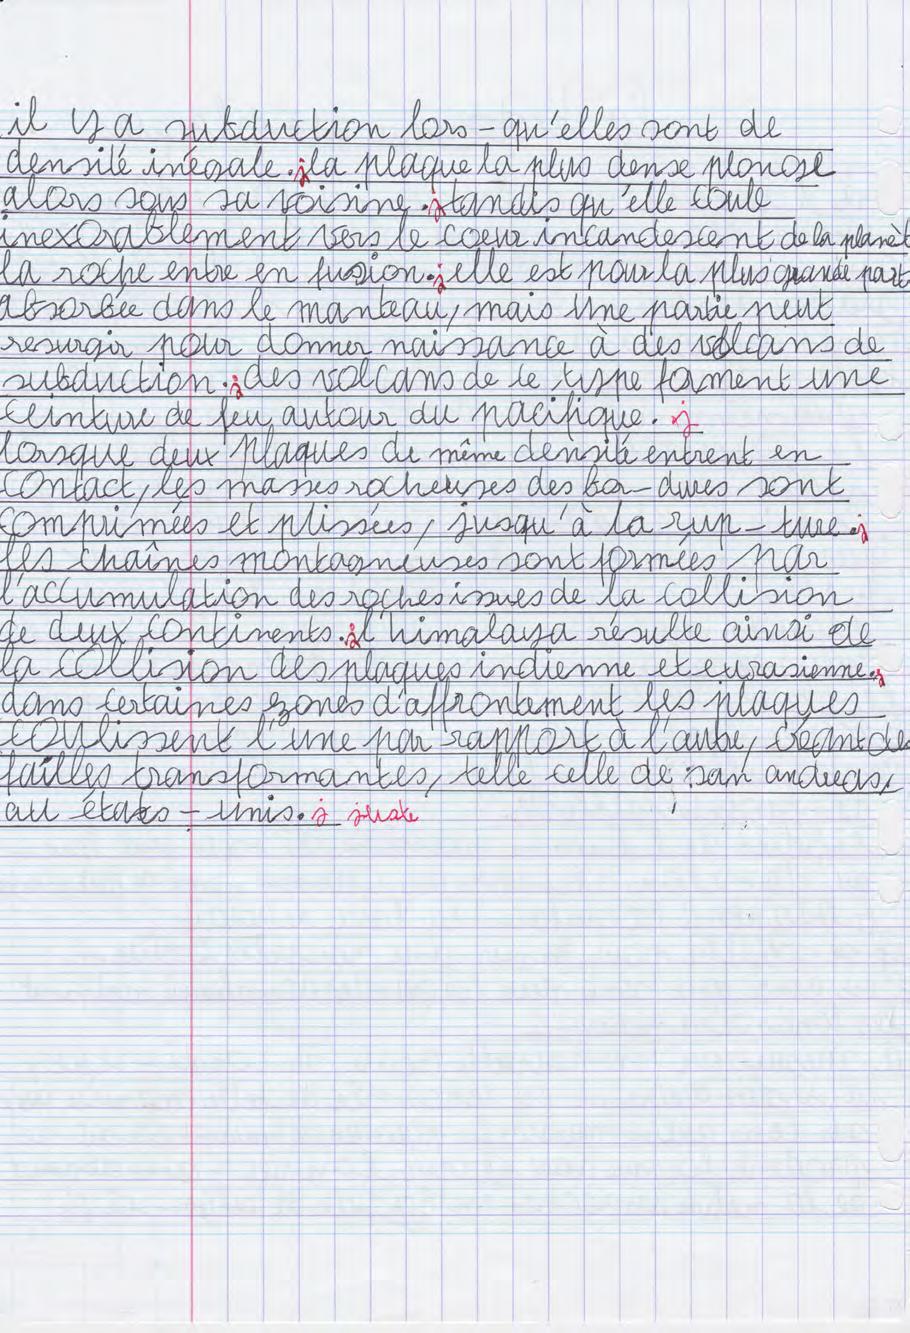 il y a subduction lors-qu'elles sont de
densité inégale. j la plaque la plus dense plonge
alors sous sa voisine. j tandis qu'elle coule
inexorablement vers le coeur incandescent de la planèt
la roche entre en fusion. j elle est pour la plus grande part
absorbée dans le manteau, mais une partie peut
resurgir pour donner naissance à des volcans de
subduction. j des volcans de ce type forment une
ceinture de feu autour du pacifique. j
lorsque deux plaques de même densité entrent en
contact, les masses rocheuses des bor-dures sont
comprimées et plissées, jusqu'à la rup-ture. j
les chaînes montagneuses sont formées par
l'accumulation des roches issues de la collision
de deux continents. j l'himalaya résulte ainsi de
la collision des plaques indienne et eurasienne. j
dans certaines zones d'affrontement les plaques
coulissent l'une par rapport à l'autre, créant des
failles transformantes, telle celle de san andreas,
au états-unis. j juste